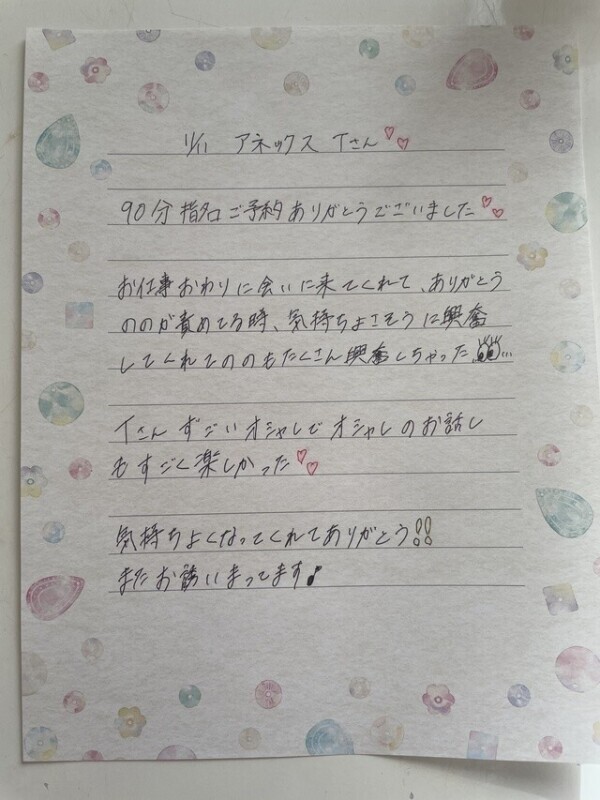 11/11 アネックス Tさん♡♡
90分指名ご予約ありがとうございました♡♡
お仕事おわりに会いに来てくれて、ありがとう
ののが責めてる時、気持ちよさそうに興奮
してくれてののもたくさん興奮しちゃった👀…
Tさんすごいオシャレでオシャレのお話し
もすごく楽しかった♡♡
気持ちよくなってくれてありがとう!!
またお誘いまってます♪